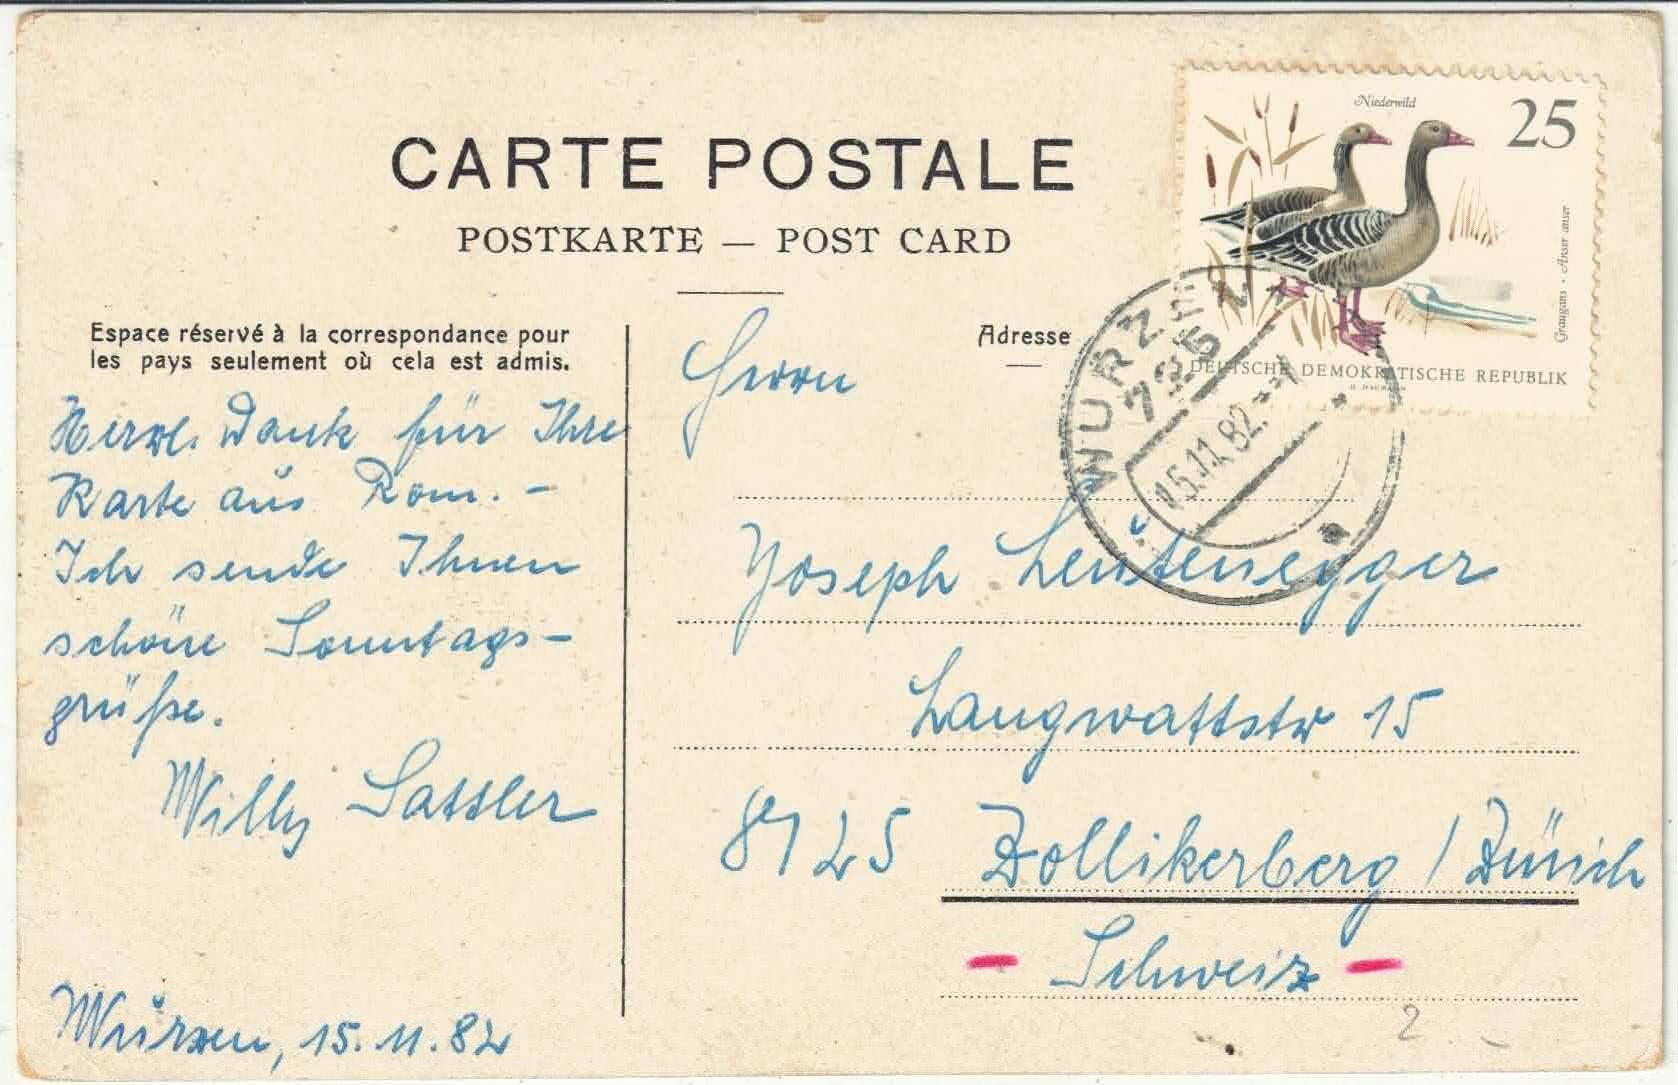 CARTE POSTALE
POSTKARTE — POST CARD
Niederwild
25
Graugans · Anser anser
DEUTSCHE DEMOKRATISCHE REPUBLIK
WURZEN
725
15.11.82.
Espace réservé à la correspondance pour
les pays seulement où cela est admis.
Adresse
Herzl. Dank für Ihre
Karte aus Rom. –
Ich sende Ihnen
schöne Sonntags-
grüße.
Willy Sattler
Wurzen, 15.11.82
Herrn
Joseph Leutenegger
Langwattstr 15
8125 Zollikerberg / Zürich
– Schweiz –
2